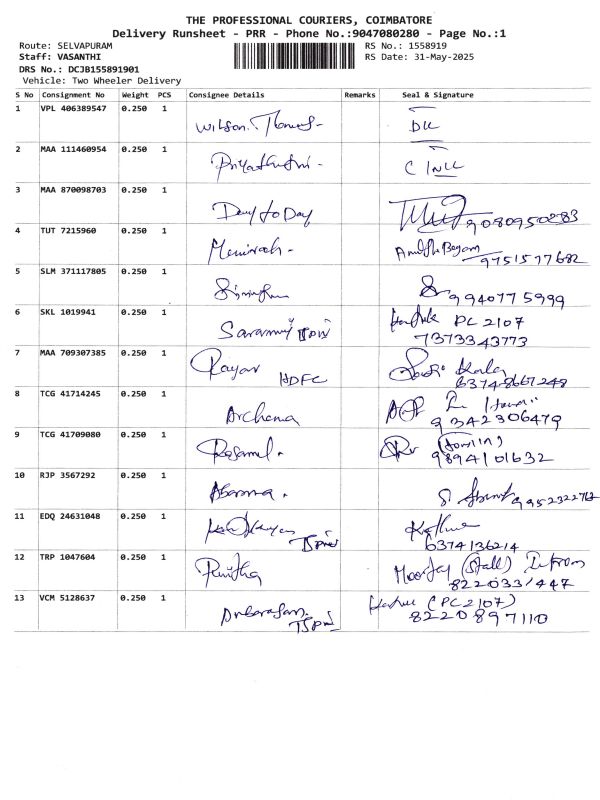 THE PROFESSIONAL COURIERS, COIMBATORE
Delivery Runsheet - PRR - Phone No.:9047080280 - Page No.:1
Route: SELVAPURAM RS No.: 1558919
Staff: VASANTHI RS Date: 31-May-2025
DRS No.: DCJB155891901
Vehicle: Two Wheeler Delivery
S No Consignment No Weight PCS Consignee Details Remarks Seal & Signature
1 VPL 406389547 0.250 1
Wilson
2 MAA 111460954 0.250 1
3 MAA 870098703 0.250 1
Day to Day 9080950283
4 TUT 7215960 0.250 1
Begam
9751577682
5 SLM 371117805 0.250 1
9940775999
6 SKL 1019941 0.250 1
PC 2107
7373343773
7 MAA 709307385 0.250 1
Rayar Kala
HDFC 63748667248
8 TCG 41714245 0.250 1
Archena 9342306479
9 TCG 41709080 0.250 1
9894101632
10 RJP 3567292 0.250 1
11 EDQ 24631048 0.250 1
6374136214
12 TRP 1047604 0.250 1
(Stall)
8220331447
13 VCM 5128637 0.250 1
(PC 2107)
8220897110